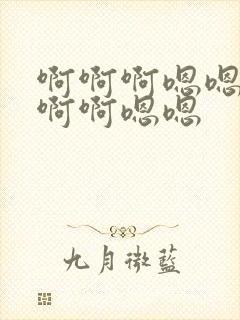 啊啊啊嗯嗯
啊啊嗯嗯
九月微蓝